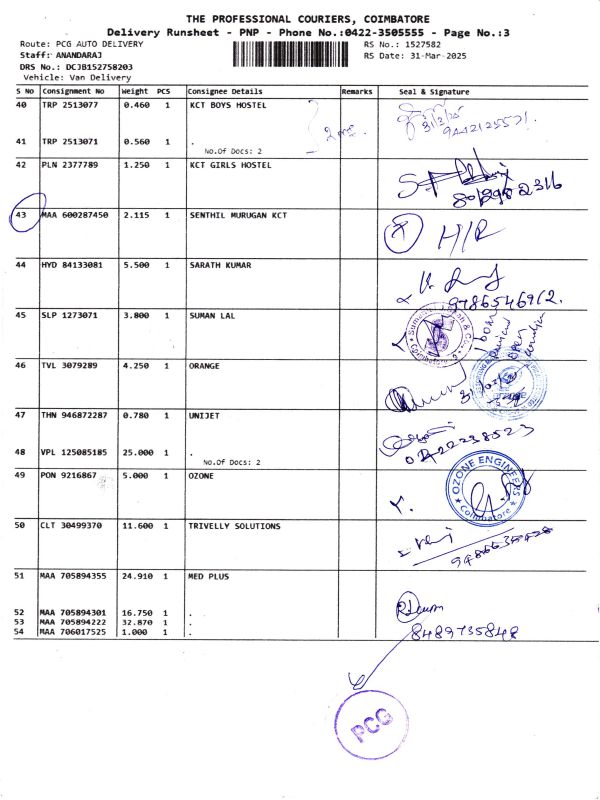 THE PROFESSIONAL COURIERS, COIMBATORE
Delivery Runsheet - PNP - Phone No.:0422-3505555 - Page No.:3
Route: PCG AUTO DELIVERY RS No.: 1527582
Staff: ANANDARAJ RS Date: 31-Mar-2025
DRS No.: DCJB152758203
Vehicle: Van Delivery
S No Consignment No Weight PCS Consignee Details Remarks Seal & Signature
40 TRP 2513077 0.460 1 KCT BOYS HOSTEL
41 TRP 2513071 0.560 1 .
No.Of Docs: 2
42 PLN 2377789 1.250 1 KCT GIRLS HOSTEL
43 MAA 600287450 2.115 1 SENTHIL MURUGAN KCT H/R
44 HYD 84133081 5.500 1 SARATH KUMAR
9786546912.
45 SLP 1273071 3.800 1 SUMAN LAL
46 TVL 3079289 4.250 1 ORANGE
47 THN 946872287 0.780 1 UNIJET
48 VPL 125085185 25.000 1 .
No.Of Docs: 2
49 PON 9216867 5.000 1 OZONE
OZONE ENGINEERS
Coimbatore
50 CLT 30499370 11.600 1 TRIVELLY SOLUTIONS
51 MAA 705894355 24.910 1 MED PLUS
52 MAA 705894301 16.750 1 .
53 MAA 705894222 32.870 1 .
54 MAA 706017525 1.000 1 .
8489735848
PCG